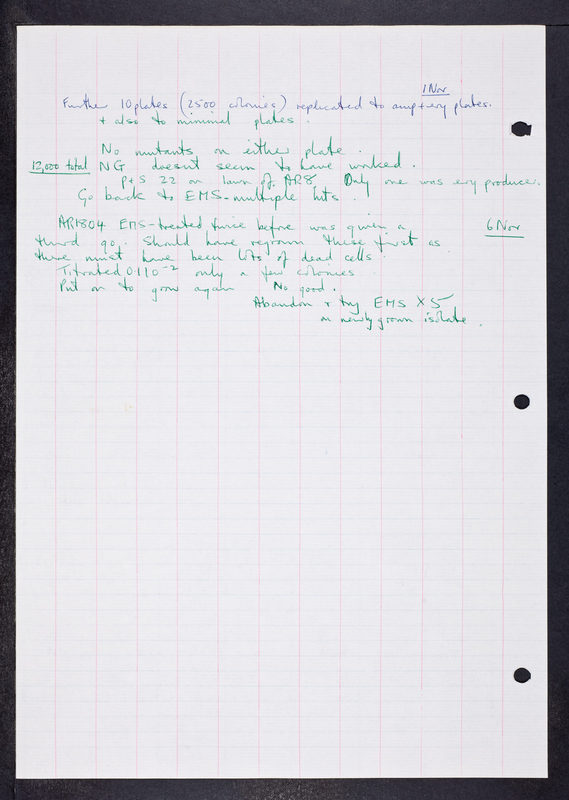 1 Nov
Further 10 plates (2500 colonies) replicated to amp + ery plates.
+ also to minimal plates.
No mutants on either plate.
12,000 total NG doesn't seem to have worked.
p + s 22 on lawn of AR8. Only one was ery producer.
Go back to EMS - multiple hits.
6 Nov
AR1804 EMS-treated twice before was given a
third go. Should have regrown these first as
there must have been lots of dead cells.
Titrated 0.1 10⁻² only a few colonies
Put on to grow again No good.
Abandon + try EMS X5
on newly grown isolate.